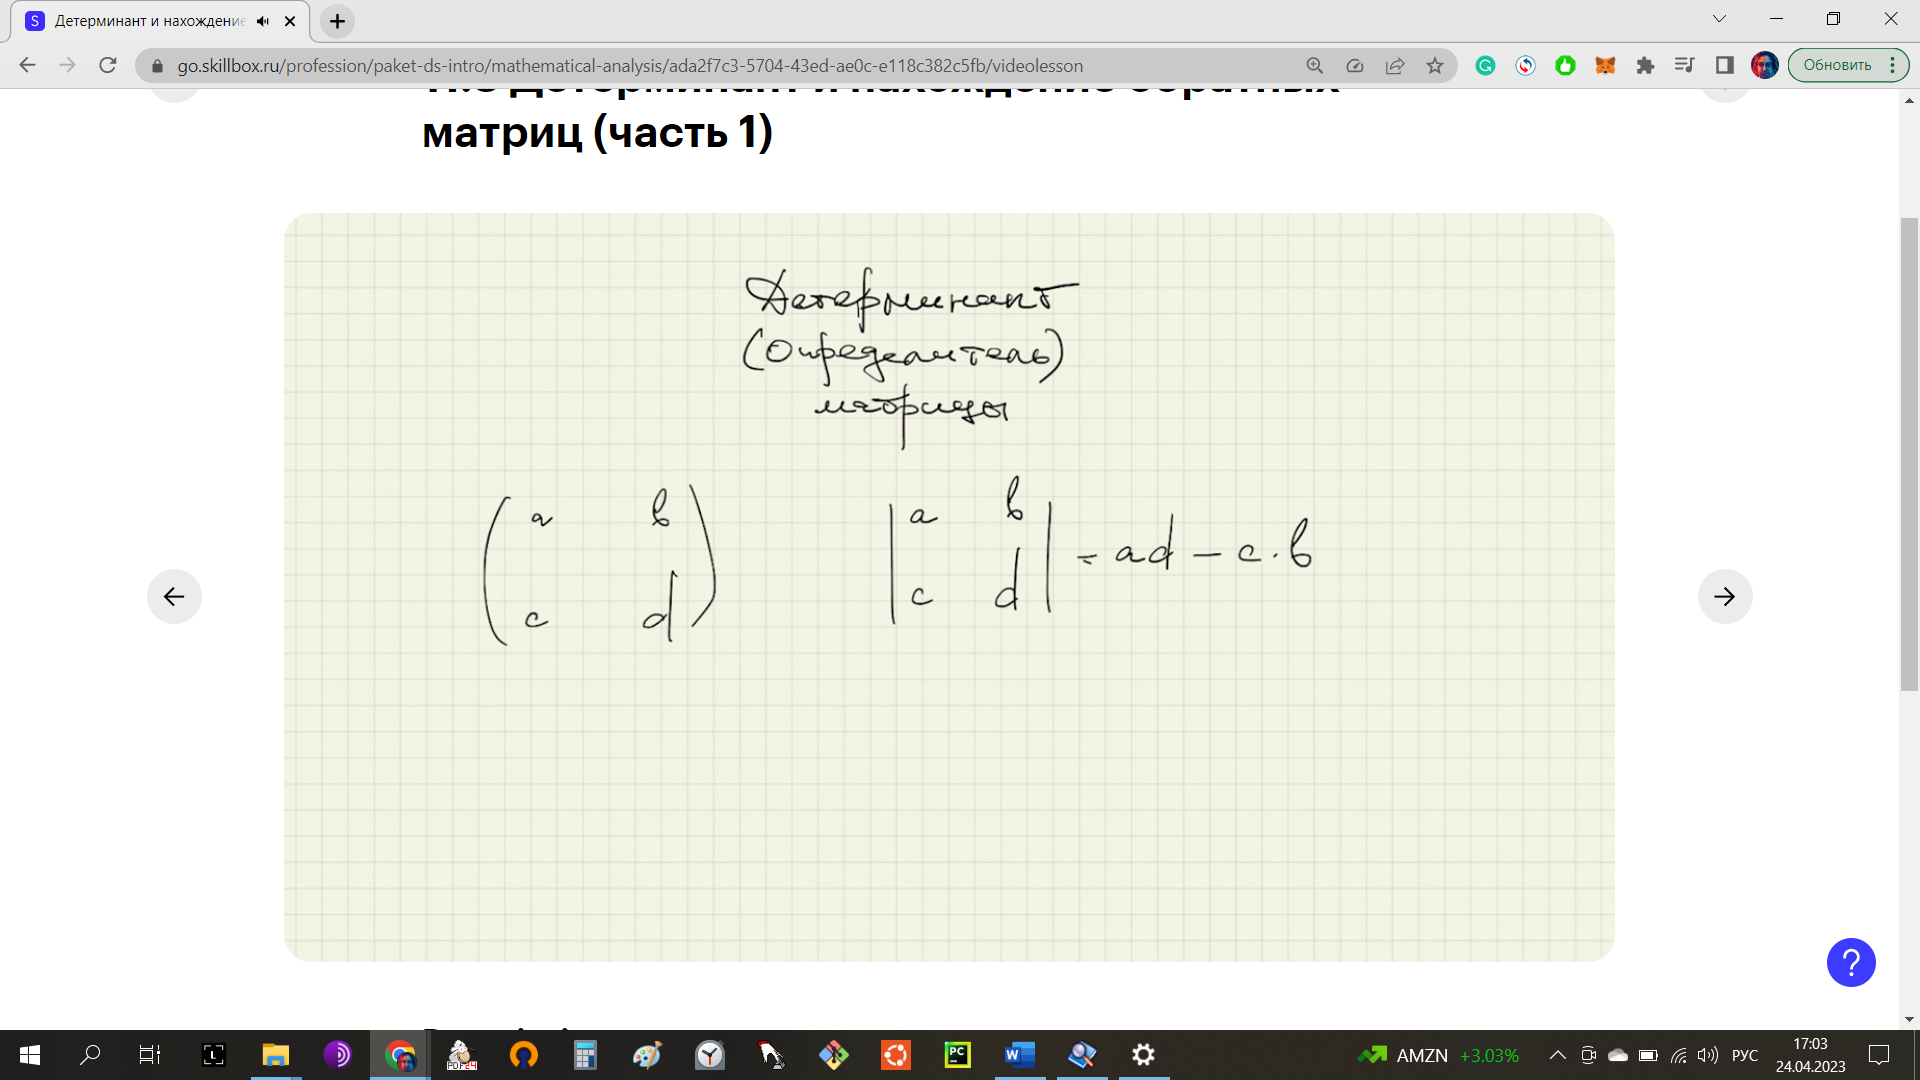 Детерминант и нахождение
go.skillbox.ru/profession/paket-ds-intro/mathematical-analysis/ada2f7c3-5704-43ed-ae0c-e118c382c5fb/videolesson
Обновить
11.3 Детерминант и нахождение обратных
матриц (часть 1)
Детерминант
(Определитель)
матрицы
a b a b
= ad - c·b
c d c d
?
AMZN +3.03%
РУС
17:03
24.04.2023